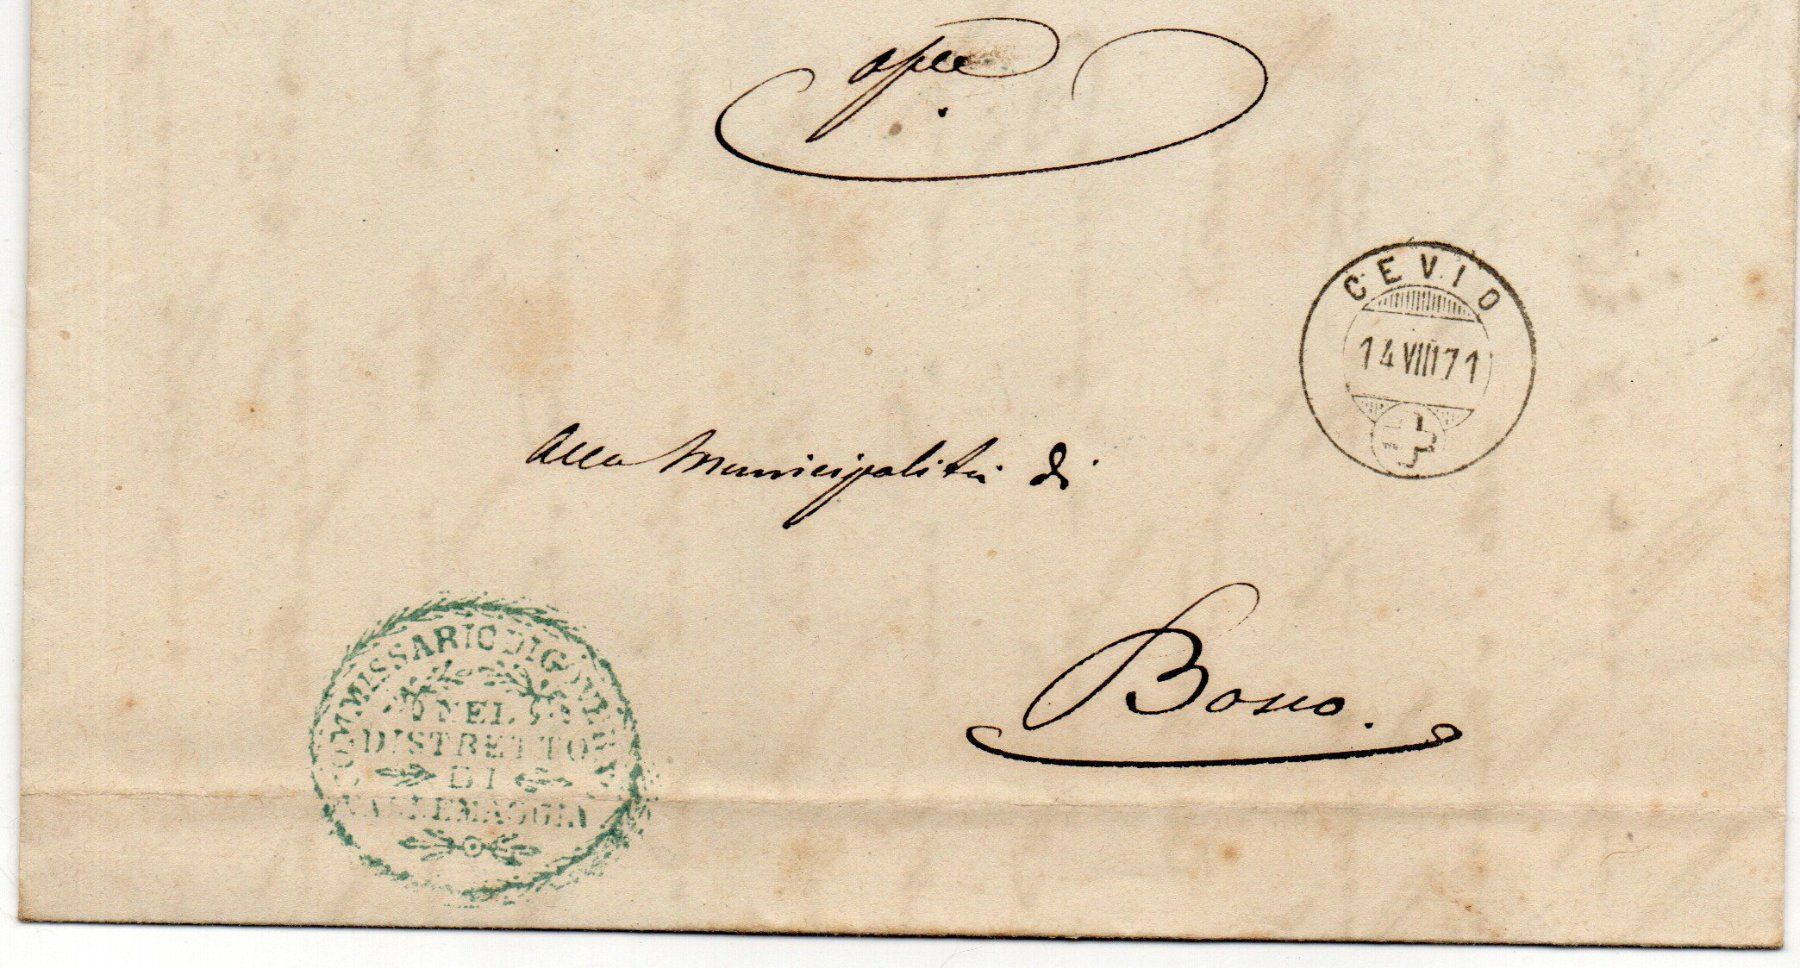 CEVIO
14 VIII 71
Alla Municipalità di
Bosco.
COMMISSARIO DI GOVERNO
NEL
DISTRETTO
DI
VALLEMAGGIA